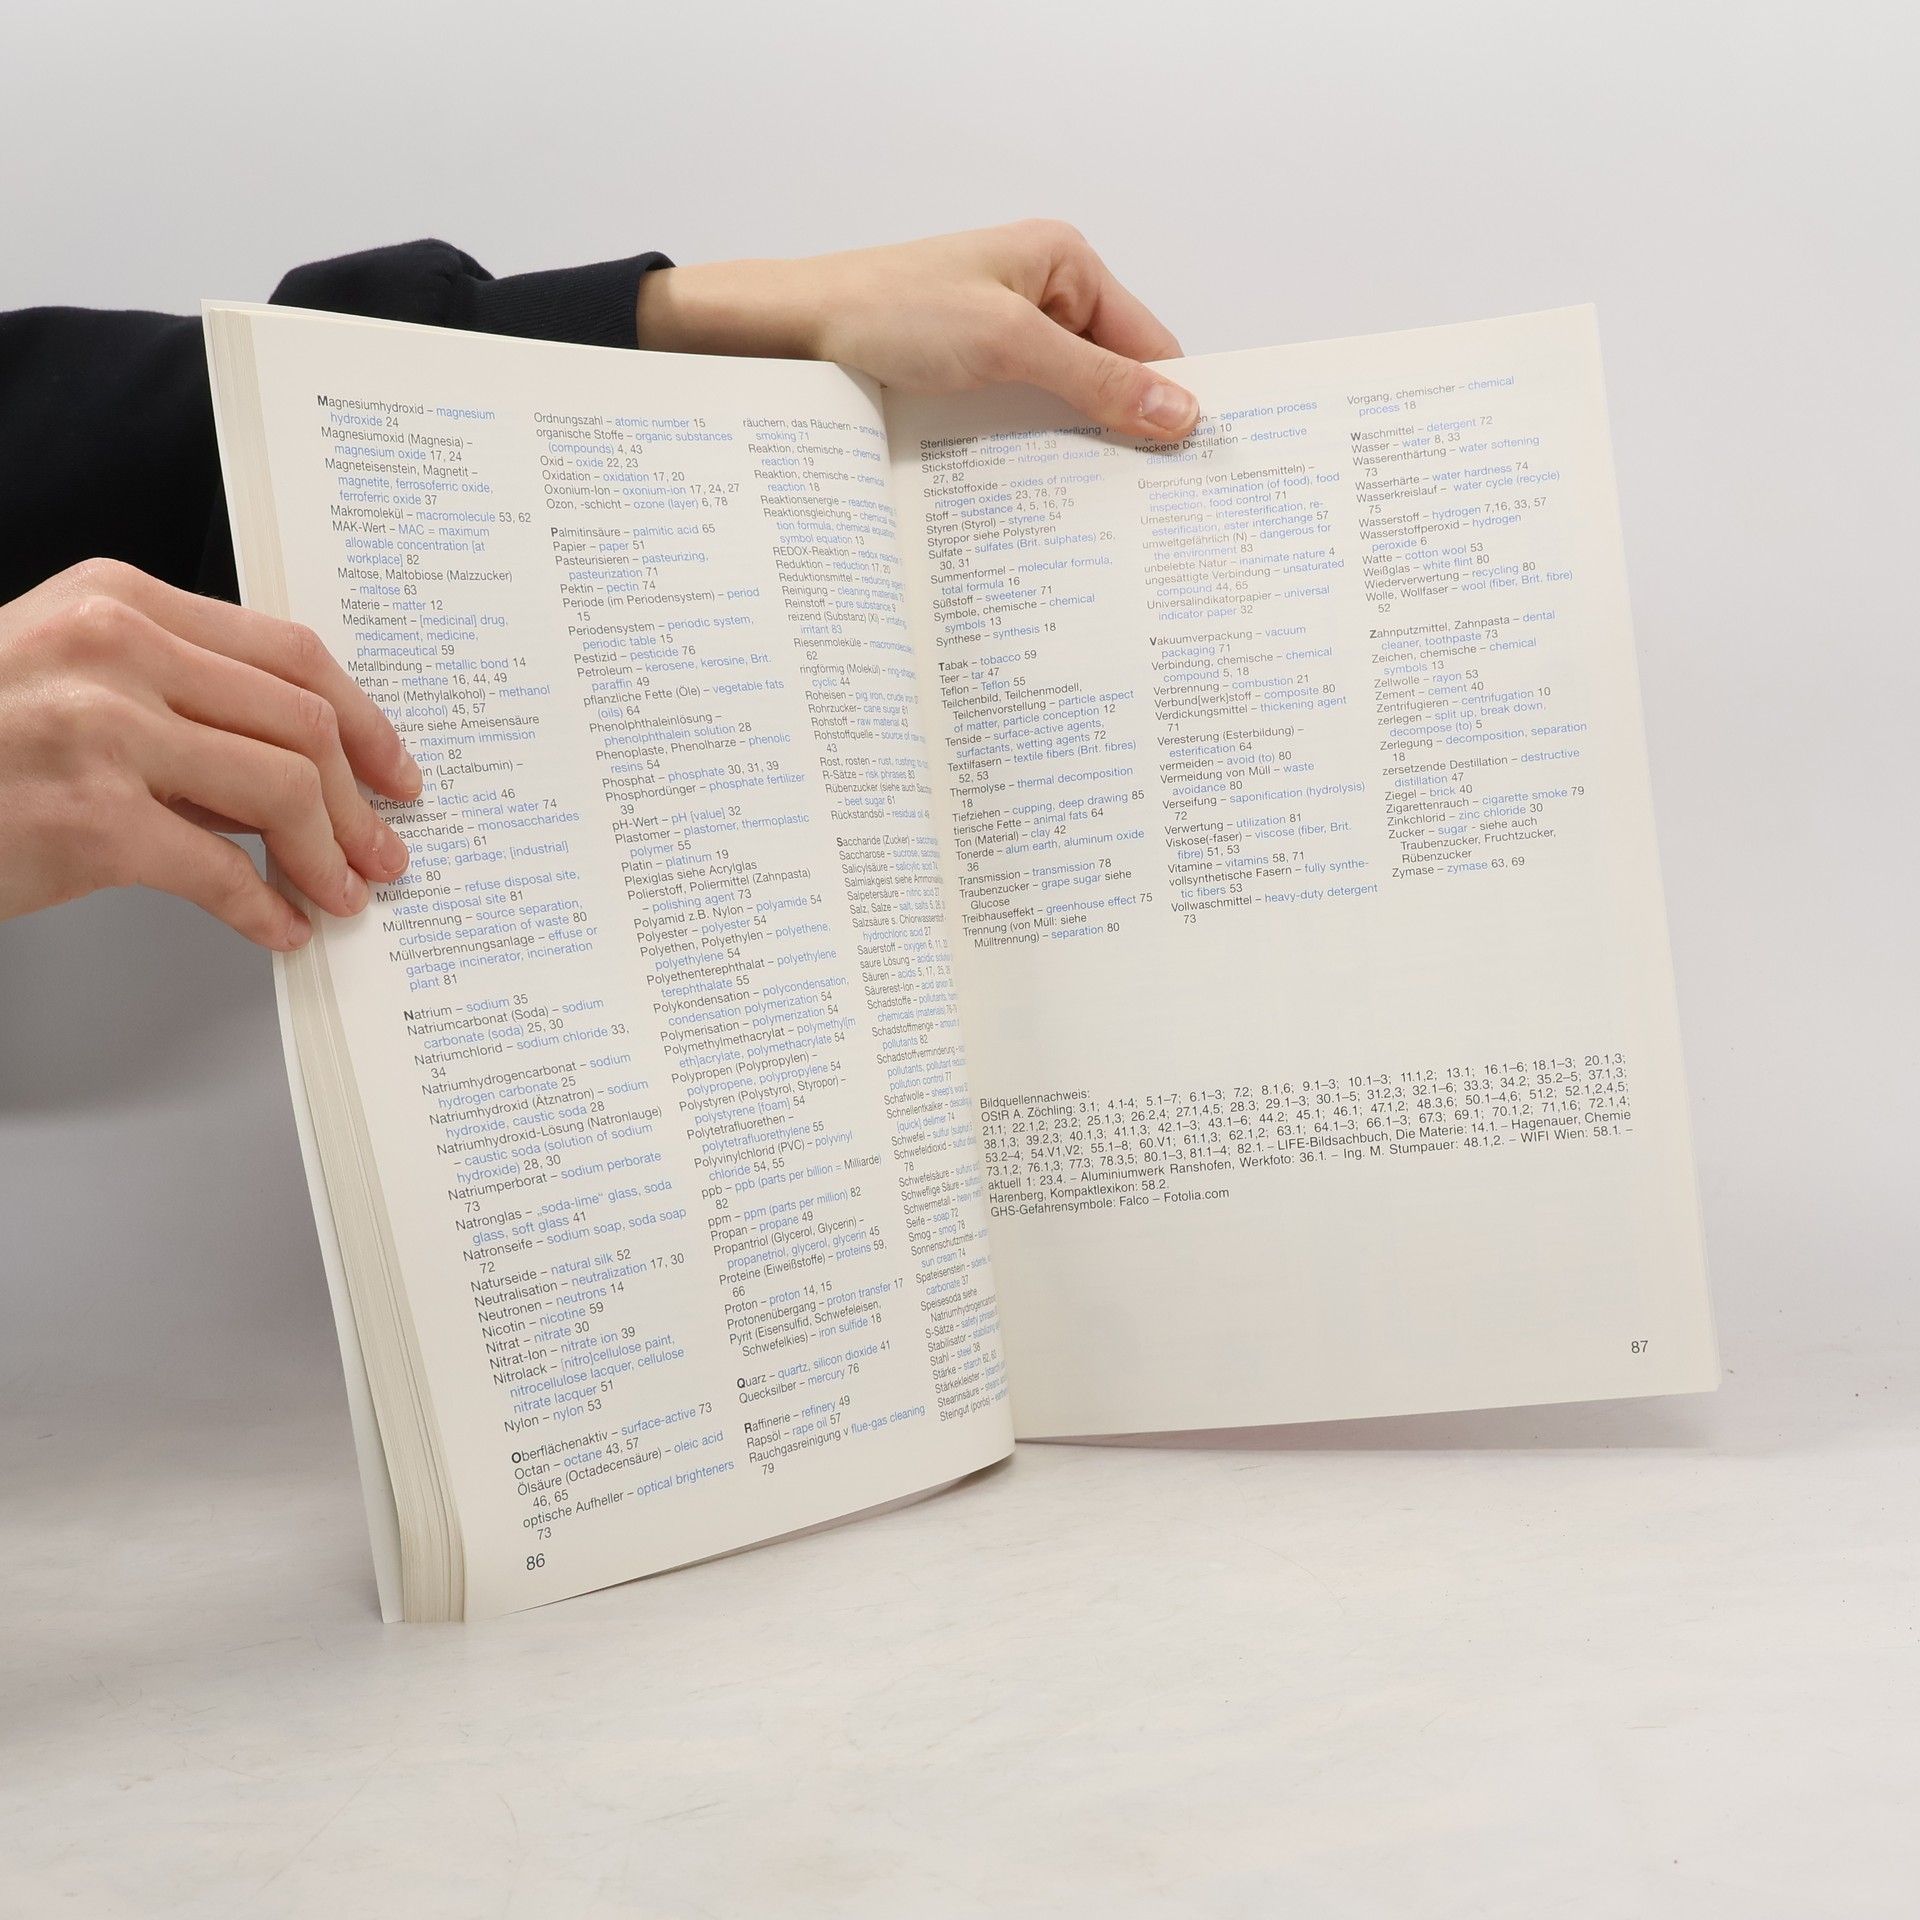 Magnesiumhydroxid – magnesium
hydroxide 24
Magnesiumoxid (Magnesia) –
magnesium oxide 17, 24
Magneteisenstein, Magnetit –
magnetite, ferrosoferric oxide,
ferroferric oxide 37
Makromolekül – macromolecule 53, 62
MAK-Wert – MAC = maximum
allowable concentration [at
workplace] 82
Maltose, Maltobiose (Malzzucker)
– maltose 63
Materie – matter 12
Medikament – [medicinal] drug,
medicament, medicine,
pharmaceutical 59
Metallbindung – metallic bond 14
Methan – methane 16, 44, 49
(Methylalkohol) – methanol
alcohol) 45, 57
siehe Ameisensäure
– maximum immission
82
(Lactalbumin) –
67
Milchsäure – lactic acid 46
– mineral water 74
– monosaccharides
sugars) 61
refuse; garbage; [industrial]
waste 80
Mülldeponie – refuse disposal site,
waste disposal site 81
Mülltrennung – source separation,
curbside separation of waste 80
Müllverbrennungsanlage – effuse or
garbage incinerator, incineration
plant 81
Natrium – sodium 35
Natriumcarbonat (Soda) – sodium
carbonate (soda) 25, 30
Natriumchlorid – sodium chloride 33,
34
Natriumhydrogencarbonat – sodium
hydrogen carbonate 25
Natriumhydroxid (Ätznatron) – sodium
hydroxide, caustic soda 28
Natriumhydroxid-Lösung (Natronlauge)
– caustic soda (solution of sodium
hydroxide) 28, 30
Natriumperborat – sodium perborate
73
Natronglas – „soda-lime“ glass, soda
glass, soft glass 41
Natronseife – sodium soap, soda soap
72
Naturseide – natural silk 52
Neutralisation – neutralization 17, 30
Neutronen – neutrons 14
Nicotin – nicotine 59
Nitrat – nitrate 30
Nitrat-Ion – nitrate ion 39
Nitrolack – [nitro]cellulose paint,
nitrocellulose lacquer, cellulose
nitrate lacquer 51
Nylon – nylon 53
Oberflächenaktiv – surface-active 73
Octan – octane 43, 57
Ölsäure (Octadecensäure) – oleic acid
46, 65
optische Aufheller – optical brighteners
73
86
Ordnungszahl – atomic number 15
organische Stoffe – organic substances
(compounds) 4, 43
Oxid – oxide 22, 23
Oxidation – oxidation 17, 20
Oxonium-Ion – oxonium-ion 17, 24, 27
Ozon, -schicht – ozone (layer) 6, 78
Palmitinsäure – palmitic acid 65
Papier – paper 51
Pasteurisieren – pasteurizing,
pasteurization 71
Pektin – pectin 74
Periode (im Periodensystem) – period
15
Periodensystem – periodic system,
periodic table 15
Pestizid – pesticide 76
Petroleum – kerosene, kerosine, Brit.
paraffin 49
pflanzliche Fette (Öle) – vegetable fats
(oils) 64
Phenolphthaleinlösung –
phenolphthalein solution 28
Phenoplaste, Phenolharze – phenolic
resins 54
Phosphat – phosphate 30, 31, 39
Phosphordünger – phosphate fertilizer
39
pH-Wert – pH [value] 32
Plastomer – plastomer, thermoplastic
polymer 55
Platin – platinum 19
Plexiglas siehe Acrylglas
Polierstoff, Poliermittel (Zahnpasta)
– polishing agent 73
Polyamid z.B. Nylon – polyamide 54
Polyester – polyester 54
Polyethen, Polyethylen – polyethene,
polyethylene 54
Polyethenterephthalat – polyethylene
terephthalate 55
Polykondensation – polycondensation,
condensation polymerization 54
Polymerisation – polymerization 54
Polymethylmethacrylat – polymethyl[m
eth]acrylate, polymethacrylate 54
Polypropen (Polypropylen) –
polypropene, polypropylene 54
Polystyren (Polystyrol, Styropor) –
polystyrene [foam] 54
Polytetrafluorethen –
polytetrafluorethylene 55
Polyvinylchlorid (PVC) – polyvinyl
chloride 54, 55
ppb – ppb (parts per billion = Milliarde)
82
ppm – ppm (parts per million) 82
Propan – propane 49
Propantriol (Glycerol, Glycerin) –
propanetriol, glycerol, glycerin 45
Proteine (Eiweißstoffe) – proteins 59,
66
Proton – proton 14, 15
Protonenübergang – proton transfer 17
Pyrit (Eisensulfid, Schwefeleisen,
Schwefelkies) – iron sulfide 18
Quarz – quartz, silicon dioxide 41
Quecksilber – mercury 76
Raffinerie – refinery 49
Rapsöl – rape oil 57
Rauchgasreinigung v flue-gas cleaning
79
räuchern, das Räuchern – smoke
smoking 71
Reaktion, chemische – chemical
reaction 19
Reaktion, chemische – chemical
reaction 18
Reaktionsenergie – reaction
Reaktionsgleichung – chemical
tion formula, chemical equation
symbol equation 13
REDOX-Reaktion – redox reaction
Reduktion – reduction 17, 20
Reduktionsmittel – reducing
Reinigung – cleaning
Reinstoff – pure substance 9
reizend (Substanz) (Xi) – irritating,
irritant 83
Riesenmoleküle –
62
ringförmig (Molekül) – ring-shaped
cyclic 44
Roheisen – pig iron, crude iron
Rohrzucker – cane sugar 61
Rohstoff – raw material 43
Rohstoffquelle – source of raw
43
Rost, rosten – rust, rusting;
R-Sätze – risk phrases 83
Rübenzucker (siehe auch
– beet sugar 61
Rückstandsöl – residual oil 49
Saccharide (Zucker) –
Saccharose – sucrose,
Salicylsäure – salicylic acid
Salmiakgeist siehe
Salpetersäure – nitric acid
Salz, Salze – salt, salts 5,
Salzsäure s. Chlorwasserstoff-
hydrochloric acid 27
Sauerstoff – oxygen 6, 11,
saure Lösung – acidic
Säuren – acids 5, 17,
Säurerest-Ion – acid
Schadstoffe – pollutants,
chemicals (materials)
Schadstoffmenge –
pollutants 82
Schadstoffverminderung –
pollutants, pollutant
pollution control 77
Schafwolle – sheep's
Schnellentkalker –
[quick], delimer 74
Schwefel – sulfur
Schwefeldioxid – sulfur
78
Schwefelsäure –
Schweflige Säure –
Schwermetall – heavy
Seife – soap 72
Smog – smog 78
Sonnenschutzmittel –
sun cream 74
Spateisenstein –
carbonate 37
Speisesoda siehe
Natriumhydrogencarbonat
S-Sätze – safety phrases
Stabilisator –
Stahl – steel 38
Stärke – starch
Stärkekleister –
Stearinsäure –
Steingut (porös) –
Sterilisieren – sterilization, sterilizing
Stickstoff – nitrogen 11, 33
Stickstoffdioxide – nitrogen dioxide 23,
27, 82
Stickstoffoxide – oxides of nitrogen,
nitrogen oxides 23, 78, 79
Stoff – substance 4, 5, 16, 75
Styren (Styrol) – styrene 54
Styropor siehe Polystyren
Sulfate – sulfates (Brit. sulphates) 26,
30, 31
Summenformel – molecular formula,
total formula 16
Süßstoff – sweetener 71
Symbole, chemische – chemical
symbols 13
Synthese – synthesis 18
Tabak – tobacco 59
Teer – tar 47
Teflon – Teflon 55
Teilchenbild, Teilchenmodell,
Teilchenvorstellung – particle aspect
of matter, particle conception 12
Tenside – surface-active agents,
surfactants, wetting agents 72
Textilfasern – textile fibers (Brit. fibres)
52, 53
Thermolyse – thermal decomposition
18
Tiefziehen – cupping, deep drawing 85
tierische Fette – animal fats 64
Ton (Material) – clay 42
Tonerde – alum earth, aluminum oxide
36
Transmission – transmission 78
Traubenzucker – grape sugar siehe
Glucose
Treibhauseffekt – greenhouse effect 75
Trennung (von Müll: siehe
Mülltrennung) – separation 80
– separation process
10
trockene Destillation – destructive
distillation 47
Überprüfung (von Lebensmitteln) –
checking, examination (of food), food
inspection, food control 71
Umesterung – interesterification, re-
esterification, ester interchange 57
umweltgefährlich (N) – dangerous for
the environment 83
unbelebte Natur – inanimate nature 4
ungesättigte Verbindung – unsaturated
compound 44, 65
Universalindikatorpapier – universal
indicator paper 32
Vakuumverpackung – vacuum
packaging 71
Verbindung, chemische – chemical
compound 5, 18
Verbrennung – combustion 21
Verbund[werk]stoff – composite 80
Verdickungsmittel – thickening agent
71
Veresterung (Esterbildung) –
esterification 64
vermeiden – avoid (to) 80
Vermeidung von Müll – waste
avoidance 80
Verseifung – saponification (hydrolysis)
72
Verwertung – utilization 81
Viskose(-faser) – viscose (fiber, Brit.
fibre) 51, 53
Vitamine – vitamins 58, 71
vollsynthetische Fasern – fully synthe-
tic fibers 53
Vollwaschmittel – heavy-duty detergent
73
Vorgang, chemischer – chemical
process 18
Waschmittel – detergent 72
Wasser – water 8, 33
Wasserenthärtung – water softening
73
Wasserhärte – water hardness 74
Wasserkreislauf – water cycle (recycle)
75
Wasserstoff – hydrogen 7,16, 33, 57
Wasserstoffperoxid – hydrogen
peroxide 6
Watte – cotton wool 53
Weißglas – white flint 80
Wiederverwertung – recycling 80
Wolle, Wollfaser – wool (fiber, Brit. fibre)
52
Zahnputzmittel, Zahnpasta – dental
cleaner, toothpaste 73
Zeichen, chemische – chemical
symbols 13
Zellwolle – rayon 53
Zement – cement 40
Zentrifugieren – centrifugation 10
zerlegen – split up, break down,
decompose (to) 5
Zerlegung – decomposition, separation
18
zersetzende Destillation – destructive
distillation 47
Ziegel – brick 40
Zigarettenrauch – cigarette smoke 79
Zinkchlorid – zinc chloride 30
Zucker – sugar - siehe auch
Traubenzucker, Fruchtzucker,
Rübenzucker
Zymase – zymase 63, 69
Bildquellennachweis:
OStR A. Zöchling: 3.1; 4.1-4; 5.1–7; 6.1–3; 7.2; 8.1,6; 9.1–3; 10.1–3; 11.1,2; 13.1; 16.1–6; 18.1–3; 20.1,3;
21.1; 22.1,2; 23.2; 25.1,3; 26.2,4; 27.1,4,5; 28.3; 29.1–3; 30.1–5; 31.2,3; 32.1–6; 33.3; 34.2; 35.2–5; 37.1,3;
38.1,3; 39.2,3; 40.1,3; 41.1,3; 42.1–3; 43.1–6; 44.2; 45.1; 46.1; 47.1,2; 48.3,6; 50.1–4,6; 51.2; 52.1,2,4,5;
53.2–4; 54.V1,V2; 55.1–8; 60.V1; 61.1,3; 62.1,2; 63.1; 64.1–3; 66.1–3; 67.3; 69.1; 70.1,2; 71,1.6; 72.1,4;
73.1,2; 76.1,3; 77.3; 78.3,5; 80.1–3, 81.1–4; 82.1. – LIFE-Bildsachbuch, Die Materie: 14.1. – Hagenauer, Chemie
aktuell 1: 23.4. – Aluminiumwerk Ranshofen, Werkfoto: 36.1. – Ing. M. Stumpauer: 48.1,2. – WIFI Wien: 58.1. –
Harenberg, Kompaktlexikon: 58.2.
GHS-Gefahrensymbole: Falco – Fotolia.com
87